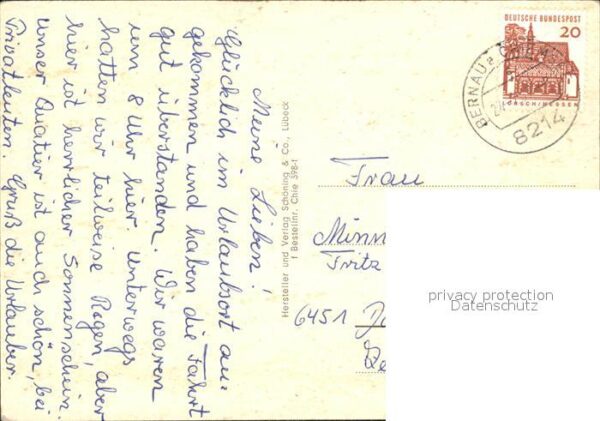 Meine Lieben!
Glücklich im Urlaubsort an=
gekommen und haben die Fahrt
gut überstanden. Wir waren
um 8 Uhr hier, unterwegs
hatten wir teilweise Regen, aber
hier ist herrlicher Sonnenschein.
Unser Quatier ist auch schön, bei
Privatleuten. Gruß die Urlauber.
Hersteller und Verlag Schöning & Co., Lübeck
Bestellnr. Chie 398-1
DEUTSCHE BUNDESPOST
20
LORSCH/HESSEN
BERNAU a.
8214
Frau
Minn
Fritz
6451
privacy protection
Datenschutz